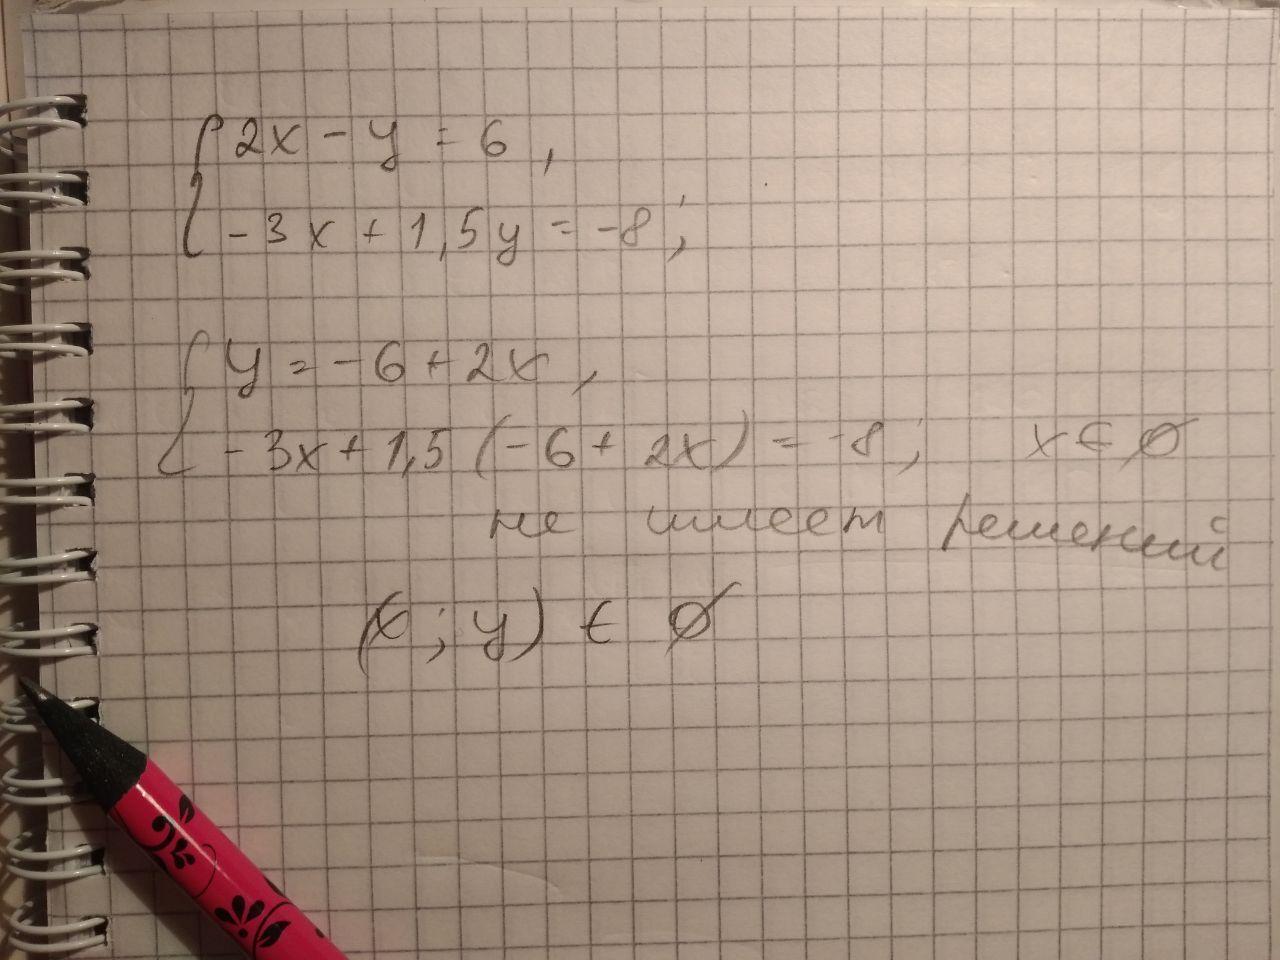 2x - y = 6,
-3x + 1,5y = -8;
y = -6 + 2x,
-3x + 1,5(-6 + 2x) = -8; x ∈ ∅
не имеет решений
(x; y) ∈ ∅